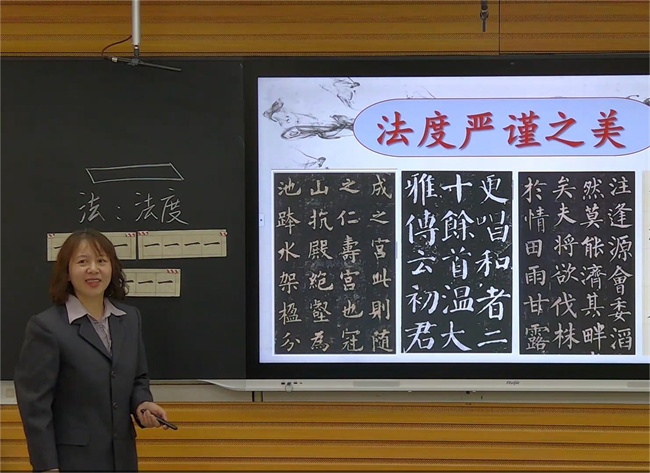 法：法度
一
一一一一
一一
法度严谨之美
成之宮此則随
之仁壽宮也冠
山抗殿絁壑為
池跨水架楹分
更唱和者二
十餘首温大
雅傳云初君
注逢源會委滔
然莫能濟其畔
矣夫将欲伐株
於情田雨甘露